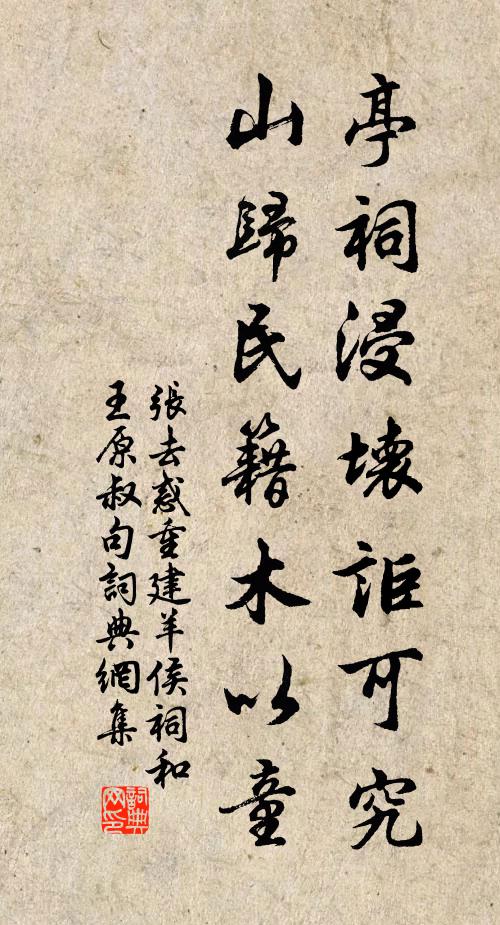 亭祠浸壞詎可究
山歸民籍木以童
張去惑重建羊侯祠和
王原叔句詞典網集
詞典
网印